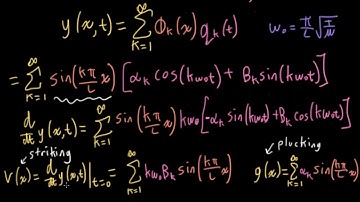 y(x,t) = ∞∑K=1 Φₖ(x) qₖ(t)   ω₀ = π/L √T/μ
= ∞∑K=1 sin(Kπ/L x) [αₖ cos(Kω₀t) + Bₖ sin(Kω₀t)]
d/dt y(x,t) = ∞∑K=1 sin(Kπ/L x) Kω₀ [-αₖ sin(Kω₀t) + Bₖ cos(Kω₀t)]
striking   plucking
v(x) = d/dt y(x,t)|t=0 = ∞∑K=1 Kω₀Bₖ sin(Kπ/L x)   g(x) = ∞∑K=1 αₖ sin(Kπ/L x)